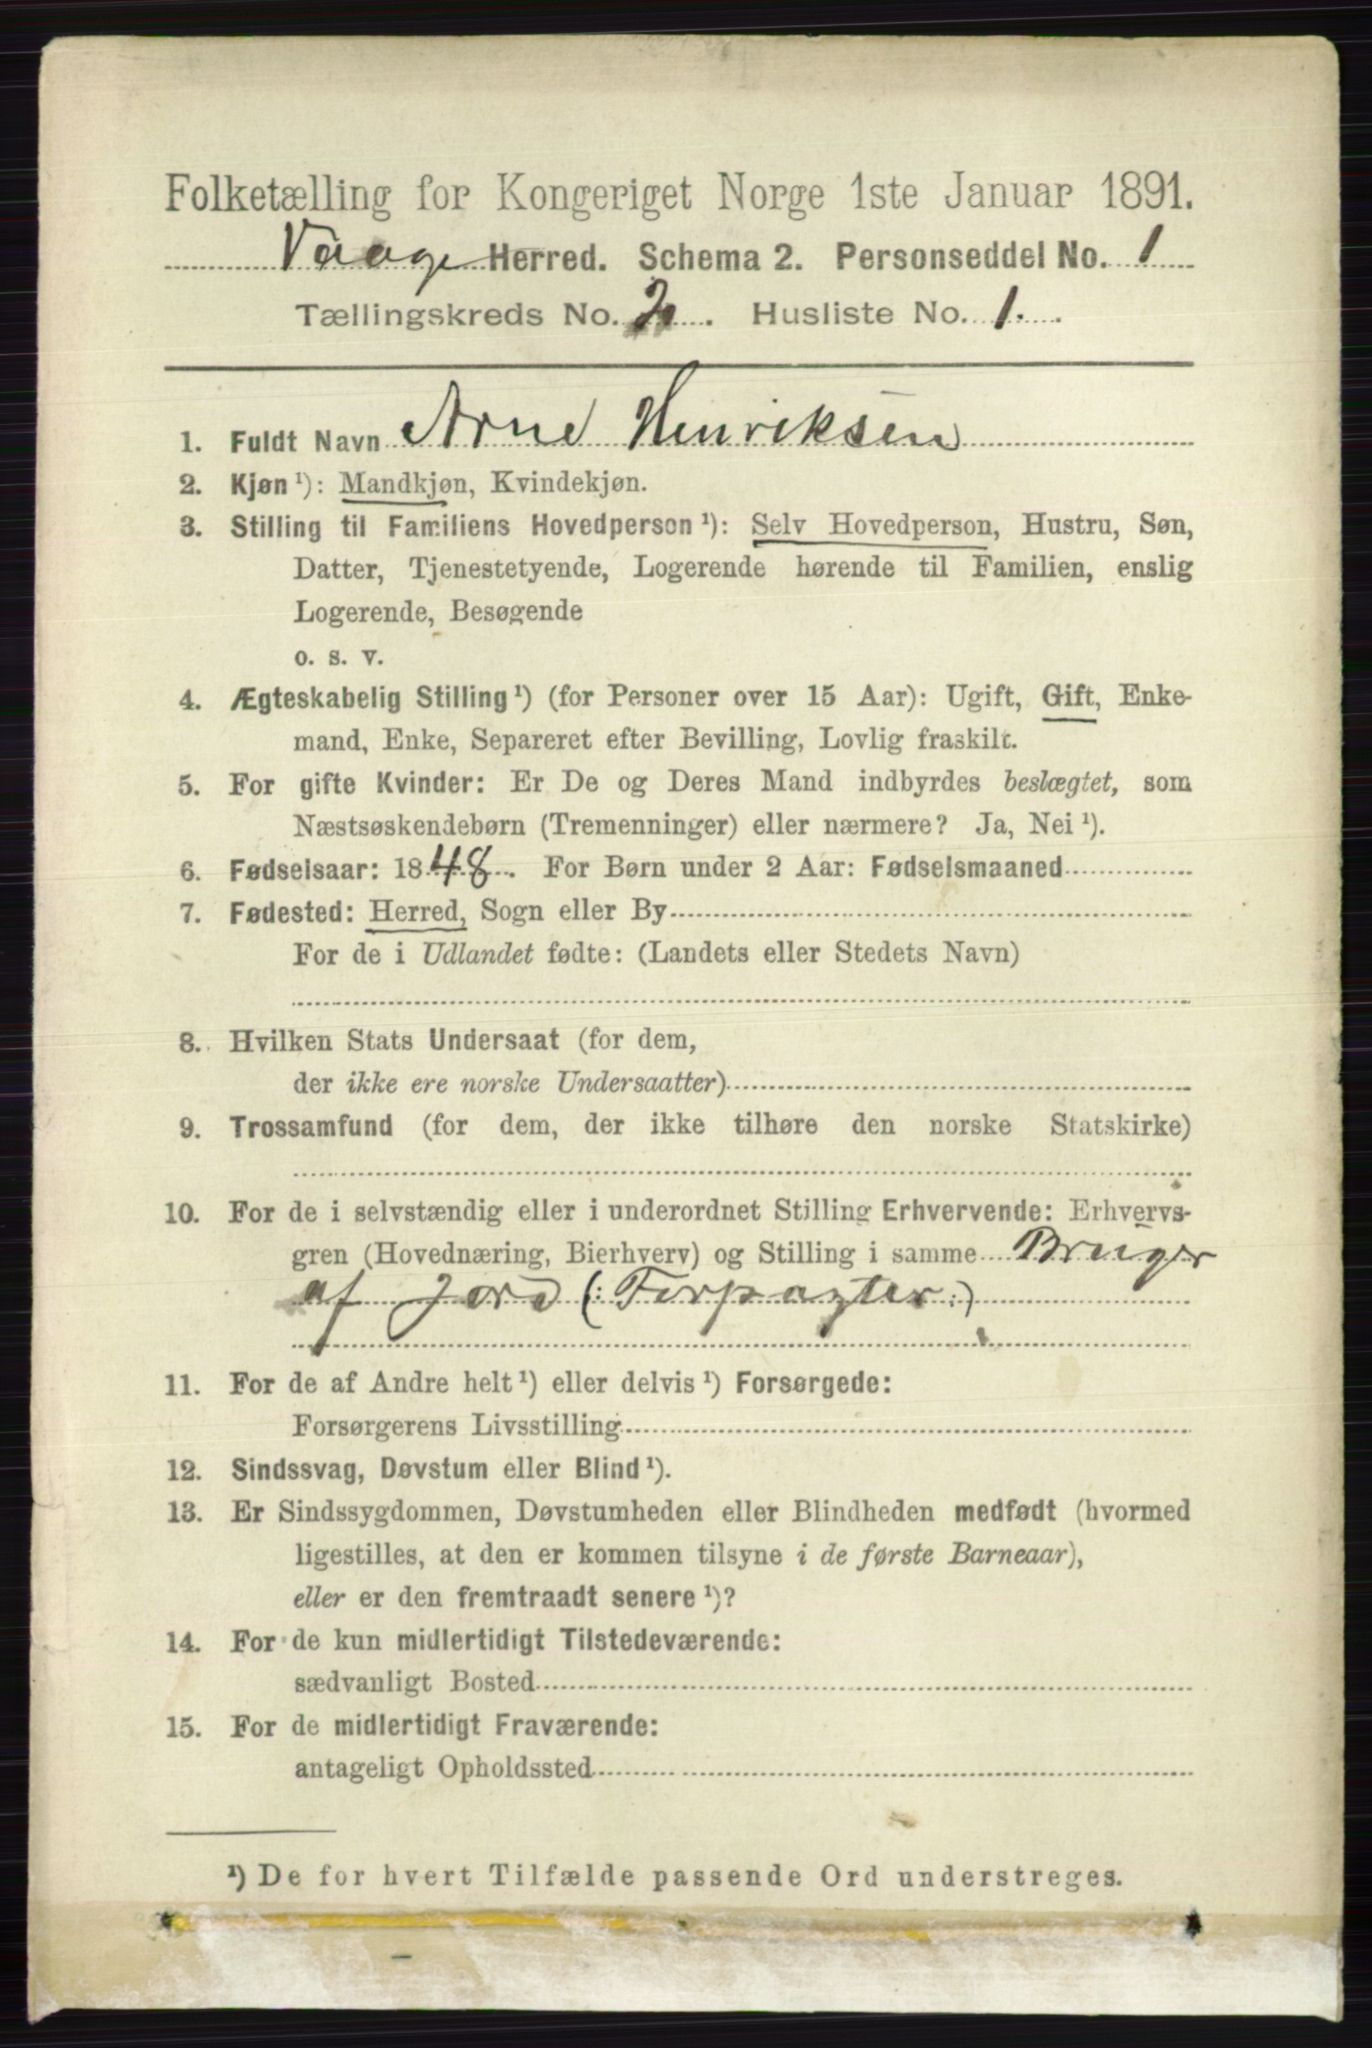 Folketælling for Kongeriget Norge 1ste Januar 1891.
Vaage Herred. Schema 2. Personseddel No. 1
Tællingskreds No. 2. Husliste No. 1.
1. Fuldt Navn Arne Henriksen
2. Kjøn ¹): Mandkjøn, Kvindekjøn.
3. Stilling til Familiens Hovedperson ¹): Selv Hovedperson, Hustru, Søn,
Datter, Tjenestetyende, Logerende hørende til Familien, enslig
Logerende, Besøgende
o. s. v.
4. Ægteskabelig Stilling ¹) (for Personer over 15 Aar): Ugift, Gift, Enke-
mand, Enke, Separeret efter Bevilling, Lovlig fraskilt.
5. For gifte Kvinder: Er De og Deres Mand indbyrdes beslægtet, som
Næstsøskendebørn (Tremenninger) eller nærmere? Ja, Nei ¹).
6. Fødselsaar: 1848. For Børn under 2 Aar: Fødselsmaaned
7. Fødested: Herred, Sogn eller By
For de i Udlandet fødte: (Landets eller Stedets Navn)
8. Hvilken Stats Undersaat (for dem,
der ikke ere norske Undersaatter)
9. Trossamfund (for dem, der ikke tilhøre den norske Statskirke)
10. For de i selvstændig eller i underordnet Stilling Erhvervende: Erhvervs-
gren (Hovednæring, Bierhverv) og Stilling i samme Bruger
af Jord (: Forpagter :)
11. For de af Andre helt ¹) eller delvis ¹) Forsørgede:
Forsørgerens Livsstilling
12. Sindssvag, Døvstum eller Blind ¹).
13. Er Sindssygdommen, Døvstumheden eller Blindheden medfødt (hvormed
ligestilles, at den er kommen tilsyne i de første Barneaar),
eller er den fremtraadt senere ¹)?
14. For de kun midlertidigt Tilstedeværende:
sædvanligt Bosted
15. For de midlertidigt Fraværende:
antageligt Opholdssted
¹) De for hvert Tilfælde passende Ord understreges.